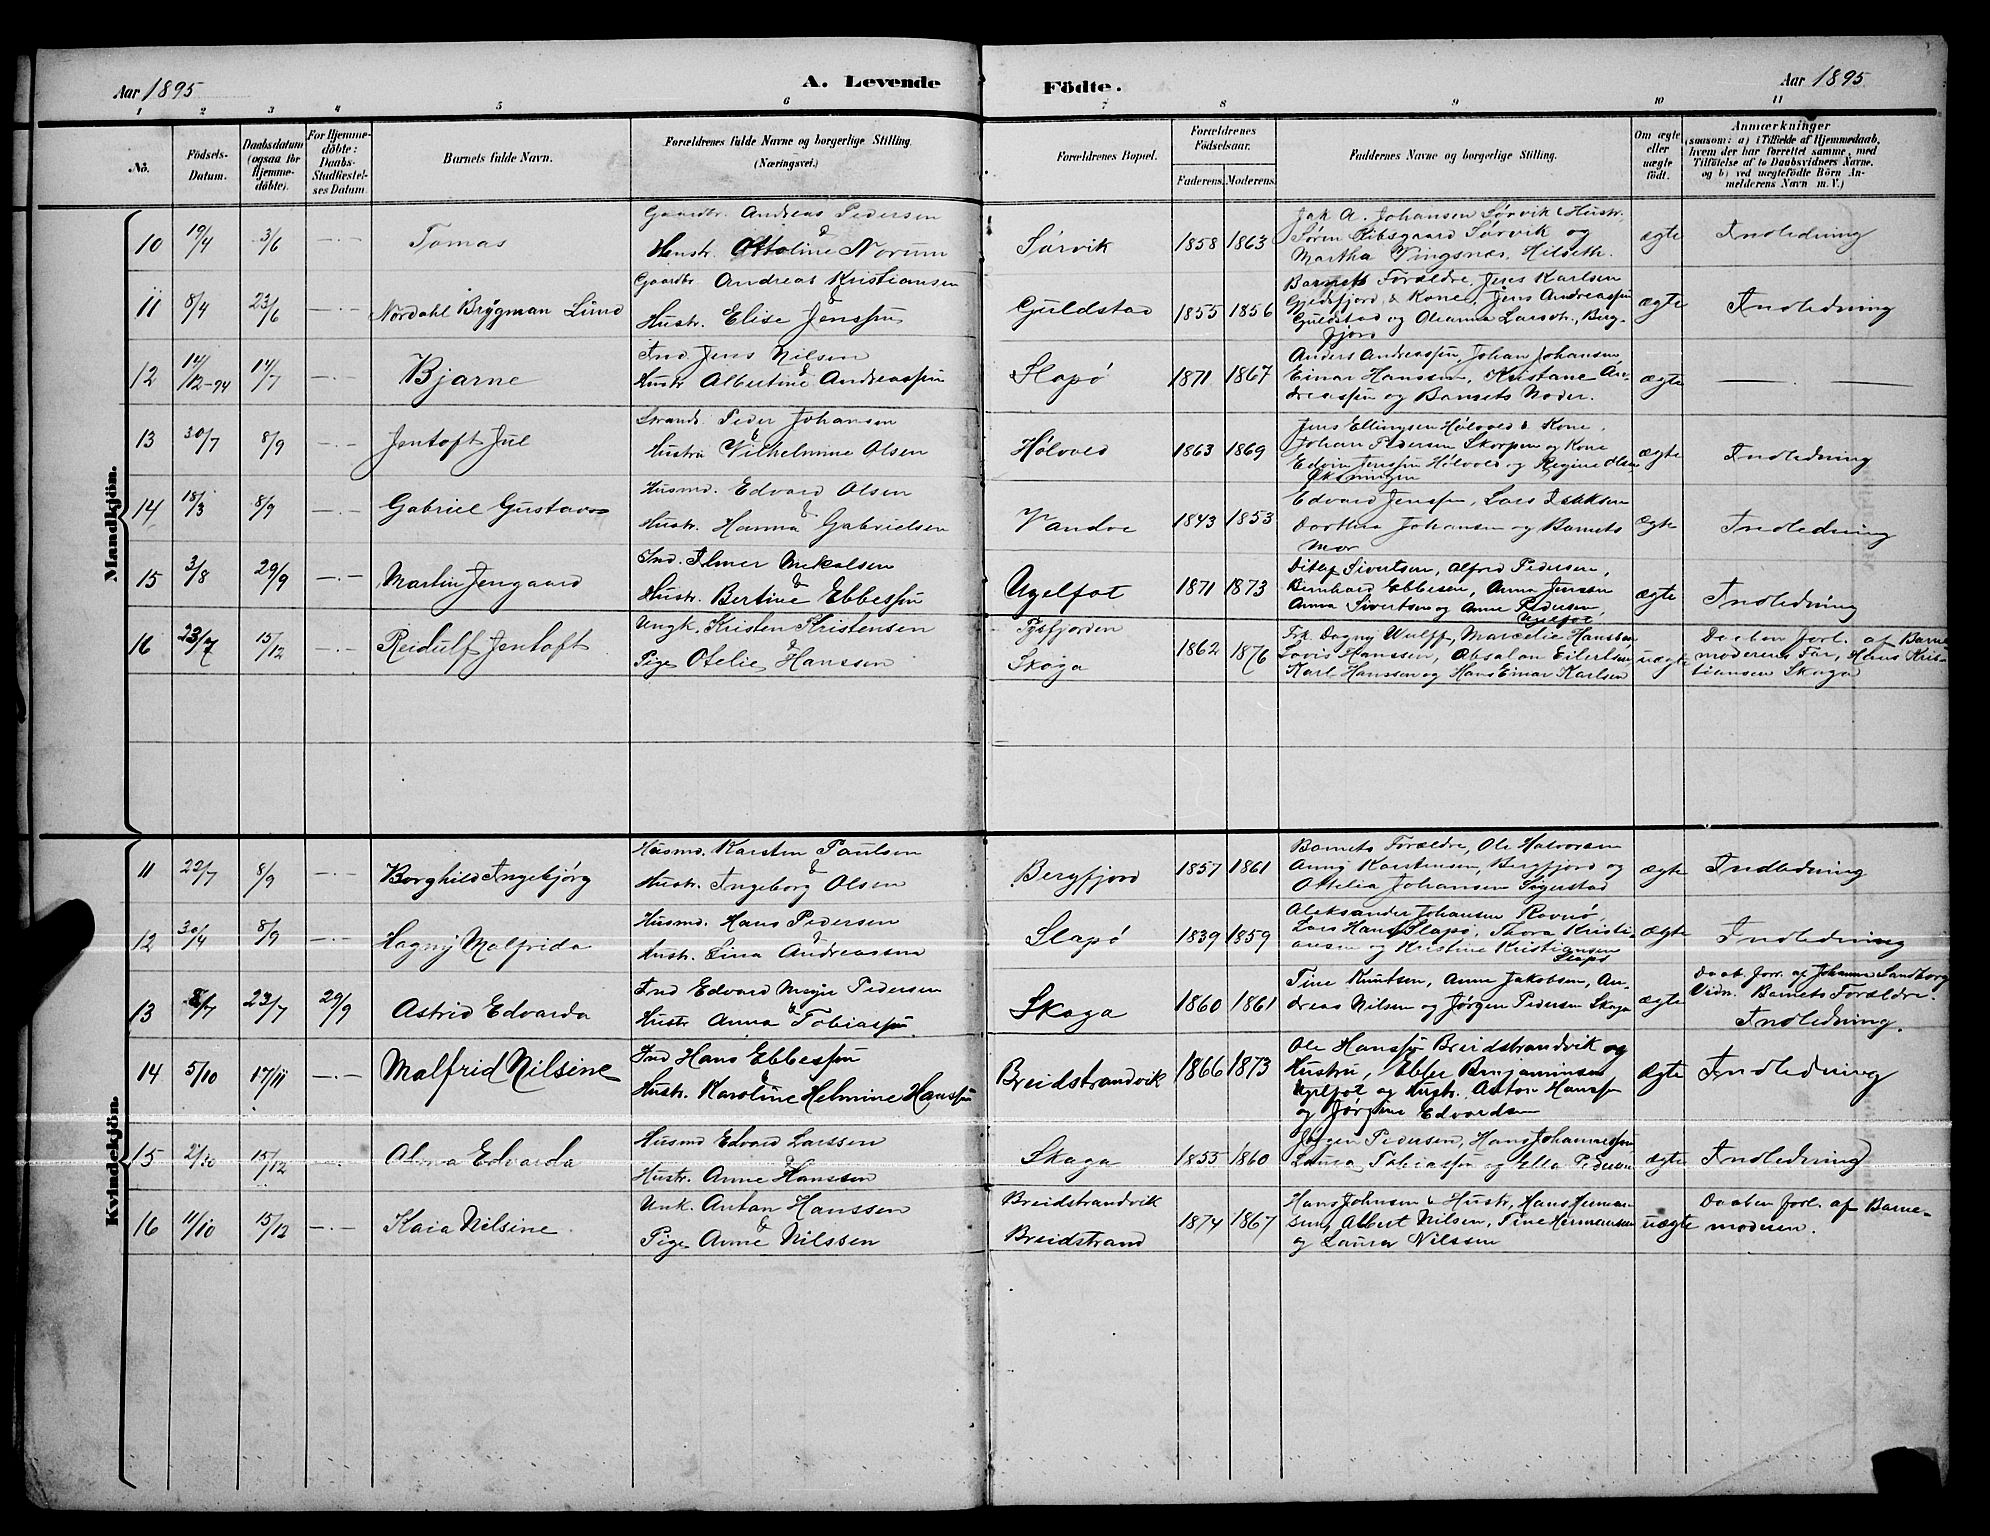 Aar 1895
A. Levende
Födte.
Aar 1895
1 2 3 4 5 6 7 8 9 10 11
No.
Födsels-Datum.
Daabsdatum (ogsaa for Hjemmedöbte).
For Hjemmedöbte: Daabs-Stadfæstelses Datum.
Barnets fulde Navn.
Forældrenes fulde Navne og borgerlige Stilling. (Næringsvei.)
Forældrenes Bopæl.
Forældrenes Födselsaar.
Faderens. Moderens.
Faddernes Navne og borgerlige Stilling.
Om ægte eller uægte födt.
Anmærkninger
(saasom: a) i Tilfælde af Hjemmedaab, hvem der har forrettet samme, med Tilföielse af to Daabsvidners Navne, og b) ved uægtefödte Börn Anmelderens Navn m. V.)
Mandkjön.
10 19/4 3/6 —·— Tomas
Gaardbr. Andreas Pedersen
& Hustr. Ottoline Norum
Sørvik 1858 1863
Jak A. Johansen Sørvik & Hustr.
Søren Hibsgaard Sørvik og
Martha Vingsnæs, Hildeth.
ægte Indledning
11 8/4 23/6 —·— Nordahl Brygman Lund
Gaardbr Andreas Kristiansen
& Hustr. Elise Jenssen
Guldstad 1855 1856
Barnets Forældre, Jens Karlsen
Gjedsfjord, & Kone, Jens Andreassen
Guldstad og Oleanna Larsdtr., Berg-
fjord
ægte Indledning
12 14/12-94 14/7 —·— Bjarne
Ind. Jens Nilsen
& Hustr Albertine Andreassen
Slapø 1871 1867
Anders Andreassen, Johan Johansen,
Einar Hanssen, Kristane An-
dreassen og Barnets Moder.
ægte — · —
13 30/7 8/9 —·— Jentoft Jul
Strands. Peder Johansen
& Hustru Vilhelmine Olsen
Holoved 1863 1869
Jens Ellingsen Holoved & Kone,
Johan Pedersen Skorpen og Kone
Edvin Jenssen Holoved og Regine Olsen
ægte Indledning
14 18/3 8/9 —·— Gabriel Gustav
Husmd. Edvard Olsen
& Hustr. Hanna Gabrielsen
Vandve 1843 1853
Edvard Jenssen, Lars Isaksen
Dorthea Johansen og Barnets
Mor
ægte Indledning
15 3/8 29/9 —·— Martin Jengaard
Ind. Elmer Mikalsen
& Hustr. Bertine Ebbessen
Ugelfot 1871 1873
Ditlef Sivertsen, Alfred Pedersen,
Bernhard Ebbesen, Anna Jenssen
Anna Sivertsen og Anne Pedersen,
Ugelfot
ægte Indledning
16 23/7 15/12 —·— Reidulf Jentoft
Ungk. Kristen Kristensen
& Pige Otelie Hanssen
Tysfjorden
Skaga
1862 1876
Frk. Dagny Wulff, Marcelie Hanssen
Lovis Hanssen, Absalon Eilertsen
Karl Hanssen og Hans Einar Karlsen
uægte
Daaben forl. af Barne
moderens Far, Hans Kris-
tiansen Skaga
Kvindekjön.
11 22/7 8/9 —·— Borghild Ingebjørg
Husmd. Karsten Paulsen
& Hustr. Ingeborg Olsen
Bergfjord 1857 1861
Barnets Forældre, Ole Halvorsen
Anny Karstensen, Bergfjord og
Ottelia Johansen Sigerstad
ægte Indledning
12 30/4 8/9 —·— Hagny Malfrida
Husmd. Hans Pedersen
& Hustr. Lina Andreassen
Slapø 1839 1859
Aleksander Johansen Rovnø,
Lars Hans. Slapø, Thora Kristi-
ansen og Kristine Kristiansen
Slapø
ægte Indledning
13 8/7 23/7 29/9 Astrid Edvarda
Ind Edvard Meyer Pedersen
& Hustr Anna Tobiassen
Skaga 1860 1861
Tine Knutsen, Anne Jakobsen, An-
dreas Nilsen og Jørgen Pedersen Skaga
ægte
Daab. forr. af Johanna Sandborg
Vidn. Barnets Forældre.
Indledning.
14 5/10 17/11 —·— Malfrid Nilsine
Ind Hans Ebbessen
& Hustr. Karoline Helmine Hanssen
Breidstrandvik 1866 1873
Ole Hanssen Breidstrandvik og
Hustru, Ebbe Benjaminsen
Ugelfot og Hustr. Anton Hanssen
og Jørgine Edvardsen
ægte Indledning
15 2/10 15/12 —·— Alma Edvarda
Husmd Edvard Larssen
& Hustr. Anne Hanssen
Skaga 1855 1860
Jørgen Pedersen, Hans Johannessen
Laura Tobiassen og Ella Pedersen
ægte Indledning
16 11/10 15/12 —·— Kaia Nilsine
Unk. Anton Hanssen
& Pige Anne Nilssen
Breidstrandvik
Breidstrand
1874 1867
Hans Johnsen & Hustr, Hans Herman-
sen, Albert Nilsen, Tine Hermansen
og Laura Nilssen
uægte
Daaben forl. af Barne-
moderen.